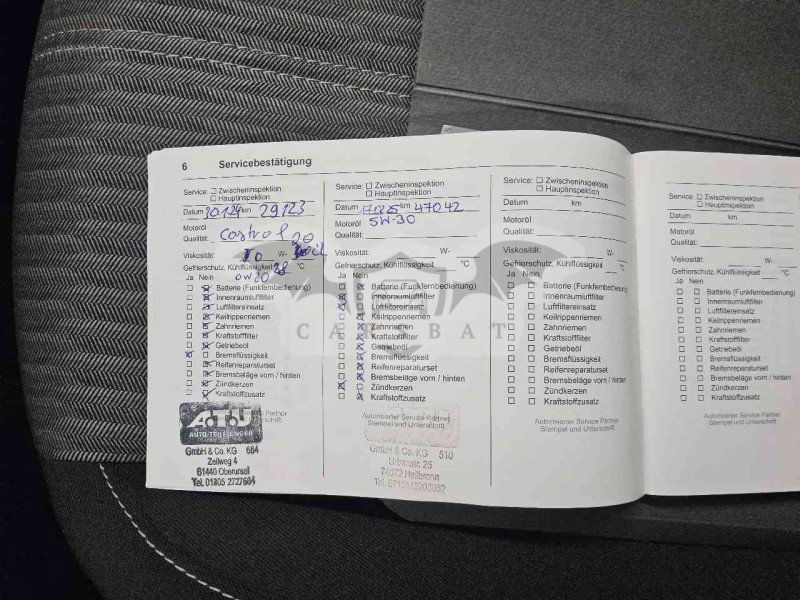 6 Servicebestätigung
Service: ☐ Zwischeninspektion
☐ Hauptinspektion
Datum km 29123
Motoröl
Qualität: Castrol
Viskosität: W-
Gefrierschutz, Kühlflüssigkeit
Ja Nein 0W30
Batterie (Funkfernbedienung)
Innenraumluftfilter
Luftfiltereinsatz
Keilrippenriemen
Zahnriemen
Kraftstofffilter
Getriebeöl
Bremsflüssigkeit
Reifenreparaturset
Bremsbeläge vorn / hinten
Zündkerzen
Kraftstoffzusatz
Partner
A.T.U
AUTO-TEILE-UNGER
GmbH & Co. KG 684
Zeilweg 4
61440 Oberursel
Tel. 01805 2727684
Service: ☐ Zwischeninspektion
☐ Hauptinspektion
Datum km 47042
Motoröl 5W-30
Qualität:
Viskosität: W-
Gefrierschutz, Kühlflüssigkeit °C
Ja Nein
Batterie (Funkfernbedienung)
Innenraumluftfilter
Luftfiltereinsatz
Keilrippenriemen
Zahnriemen
Kraftstofffilter
Getriebeöl
Bremsflüssigkeit
Reifenreparaturset
Bremsbeläge vorn / hinten
Zündkerzen
Kraftstoffzusatz
Autorisierter Service Partner
Stempel und Unterschrift
GmbH & Co. KG 510
Urbanstr. 25
74072 Heilbronn
Service: ☐ Zwischeninspektion
☐ Hauptinspektion
Datum km
Motoröl
Qualität:
Viskosität: W-
Gefrierschutz, Kühlflüssigkeit °C
Ja Nein
Batterie (Funkfernbedienung)
Innenraumluftfilter
Luftfiltereinsatz
Keilrippenriemen
Zahnriemen
Kraftstofffilter
Getriebeöl
Bremsflüssigkeit
Reifenreparaturset
Bremsbeläge vorn / hinten
Zündkerzen
Kraftstoffzusatz
Autorisierter Service Partner
Stempel und Unterschrift
Service: ☐ Zwischeninspektion
☐ Hauptinspektion
Datum km
Motoröl
Qualität:
Viskosität: W-
Gefrierschutz, Kühlflüssigkeit
Ja Nein
Batterie (Funkfernbedienung)
Innenraumluftfilter
Luftfiltereinsatz
Keilrippenriemen
Zahnriemen
Kraftstofffilter
Getriebeöl
Bremsflüssigkeit
Reifenreparaturset
Bremsbeläge vorn / hinten
Zündkerzen
Kraftstoffzusatz
Autorisierter Service Partner
Stempel und Unterschrift